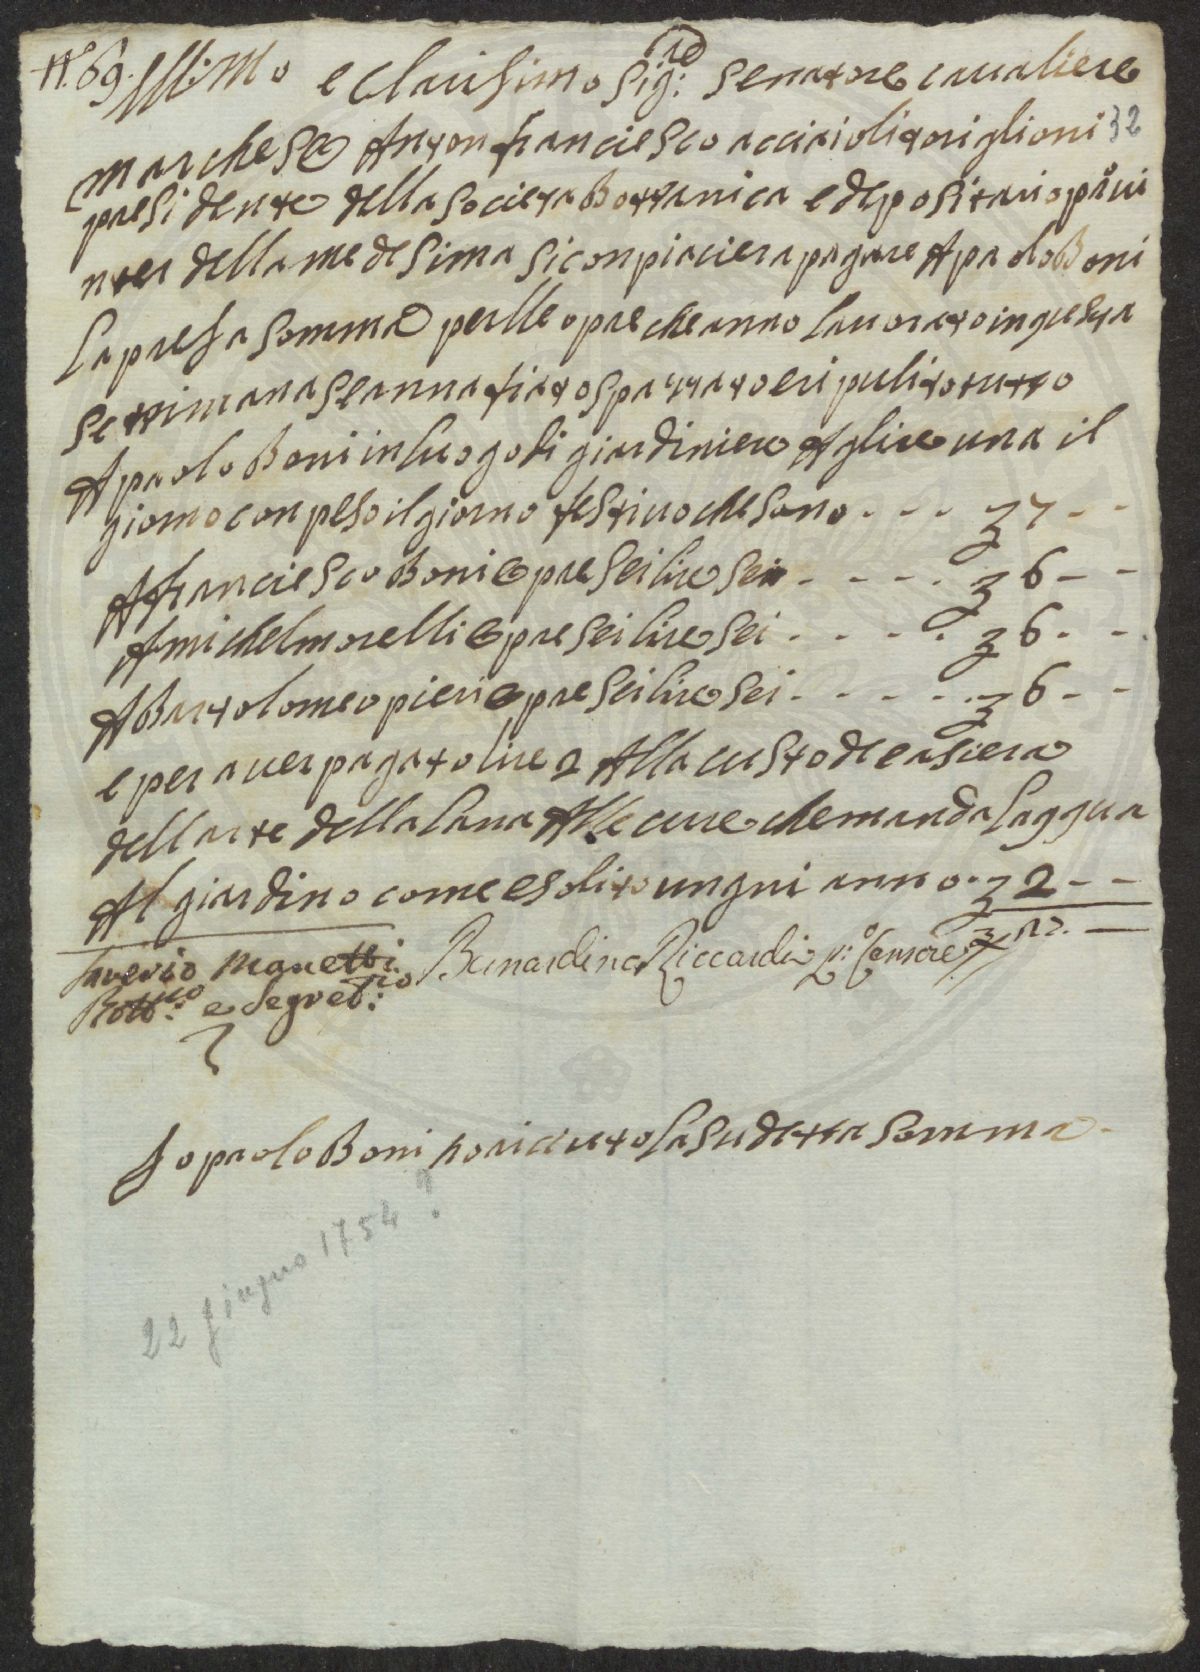 N.° 69. Ill:mo e Clarisimo Sig:re Senatore cavaliere
marchese Anton franciesco acciaioli toriglioni 32
presidente della Societa Bottanica e depositario
della medesima si conpiaciera pagare A paolo Boni
la presa somma per lle opre che anno lavorato in questa
settimana seanna fiato spazzato e ripulito tutto
A paolo Boni in luogo di giardiniere A lire una il
giorno conpeso il giorno festivo che sono - - - 7 - -
A franciesco Boni opre sei lire sei - - - - 6 - -
A michel morelli opre sei lire sei - - - - 6 - -
A Bartolomeo pieri opre sei lire sei - - - - 6 - -
e per aver pagato lire 2 Alla custode e asiera
dell arte della lana Alle cure che manda laqqua
Al giardino come e solito ungni anno - 2 - -
Saverio Manetti Bernardino Riccardi Censore 27. —
Bott:co e Segret:rio
Io paolo Boni o riceuto la sudetta somma -
22 giugno 1754?